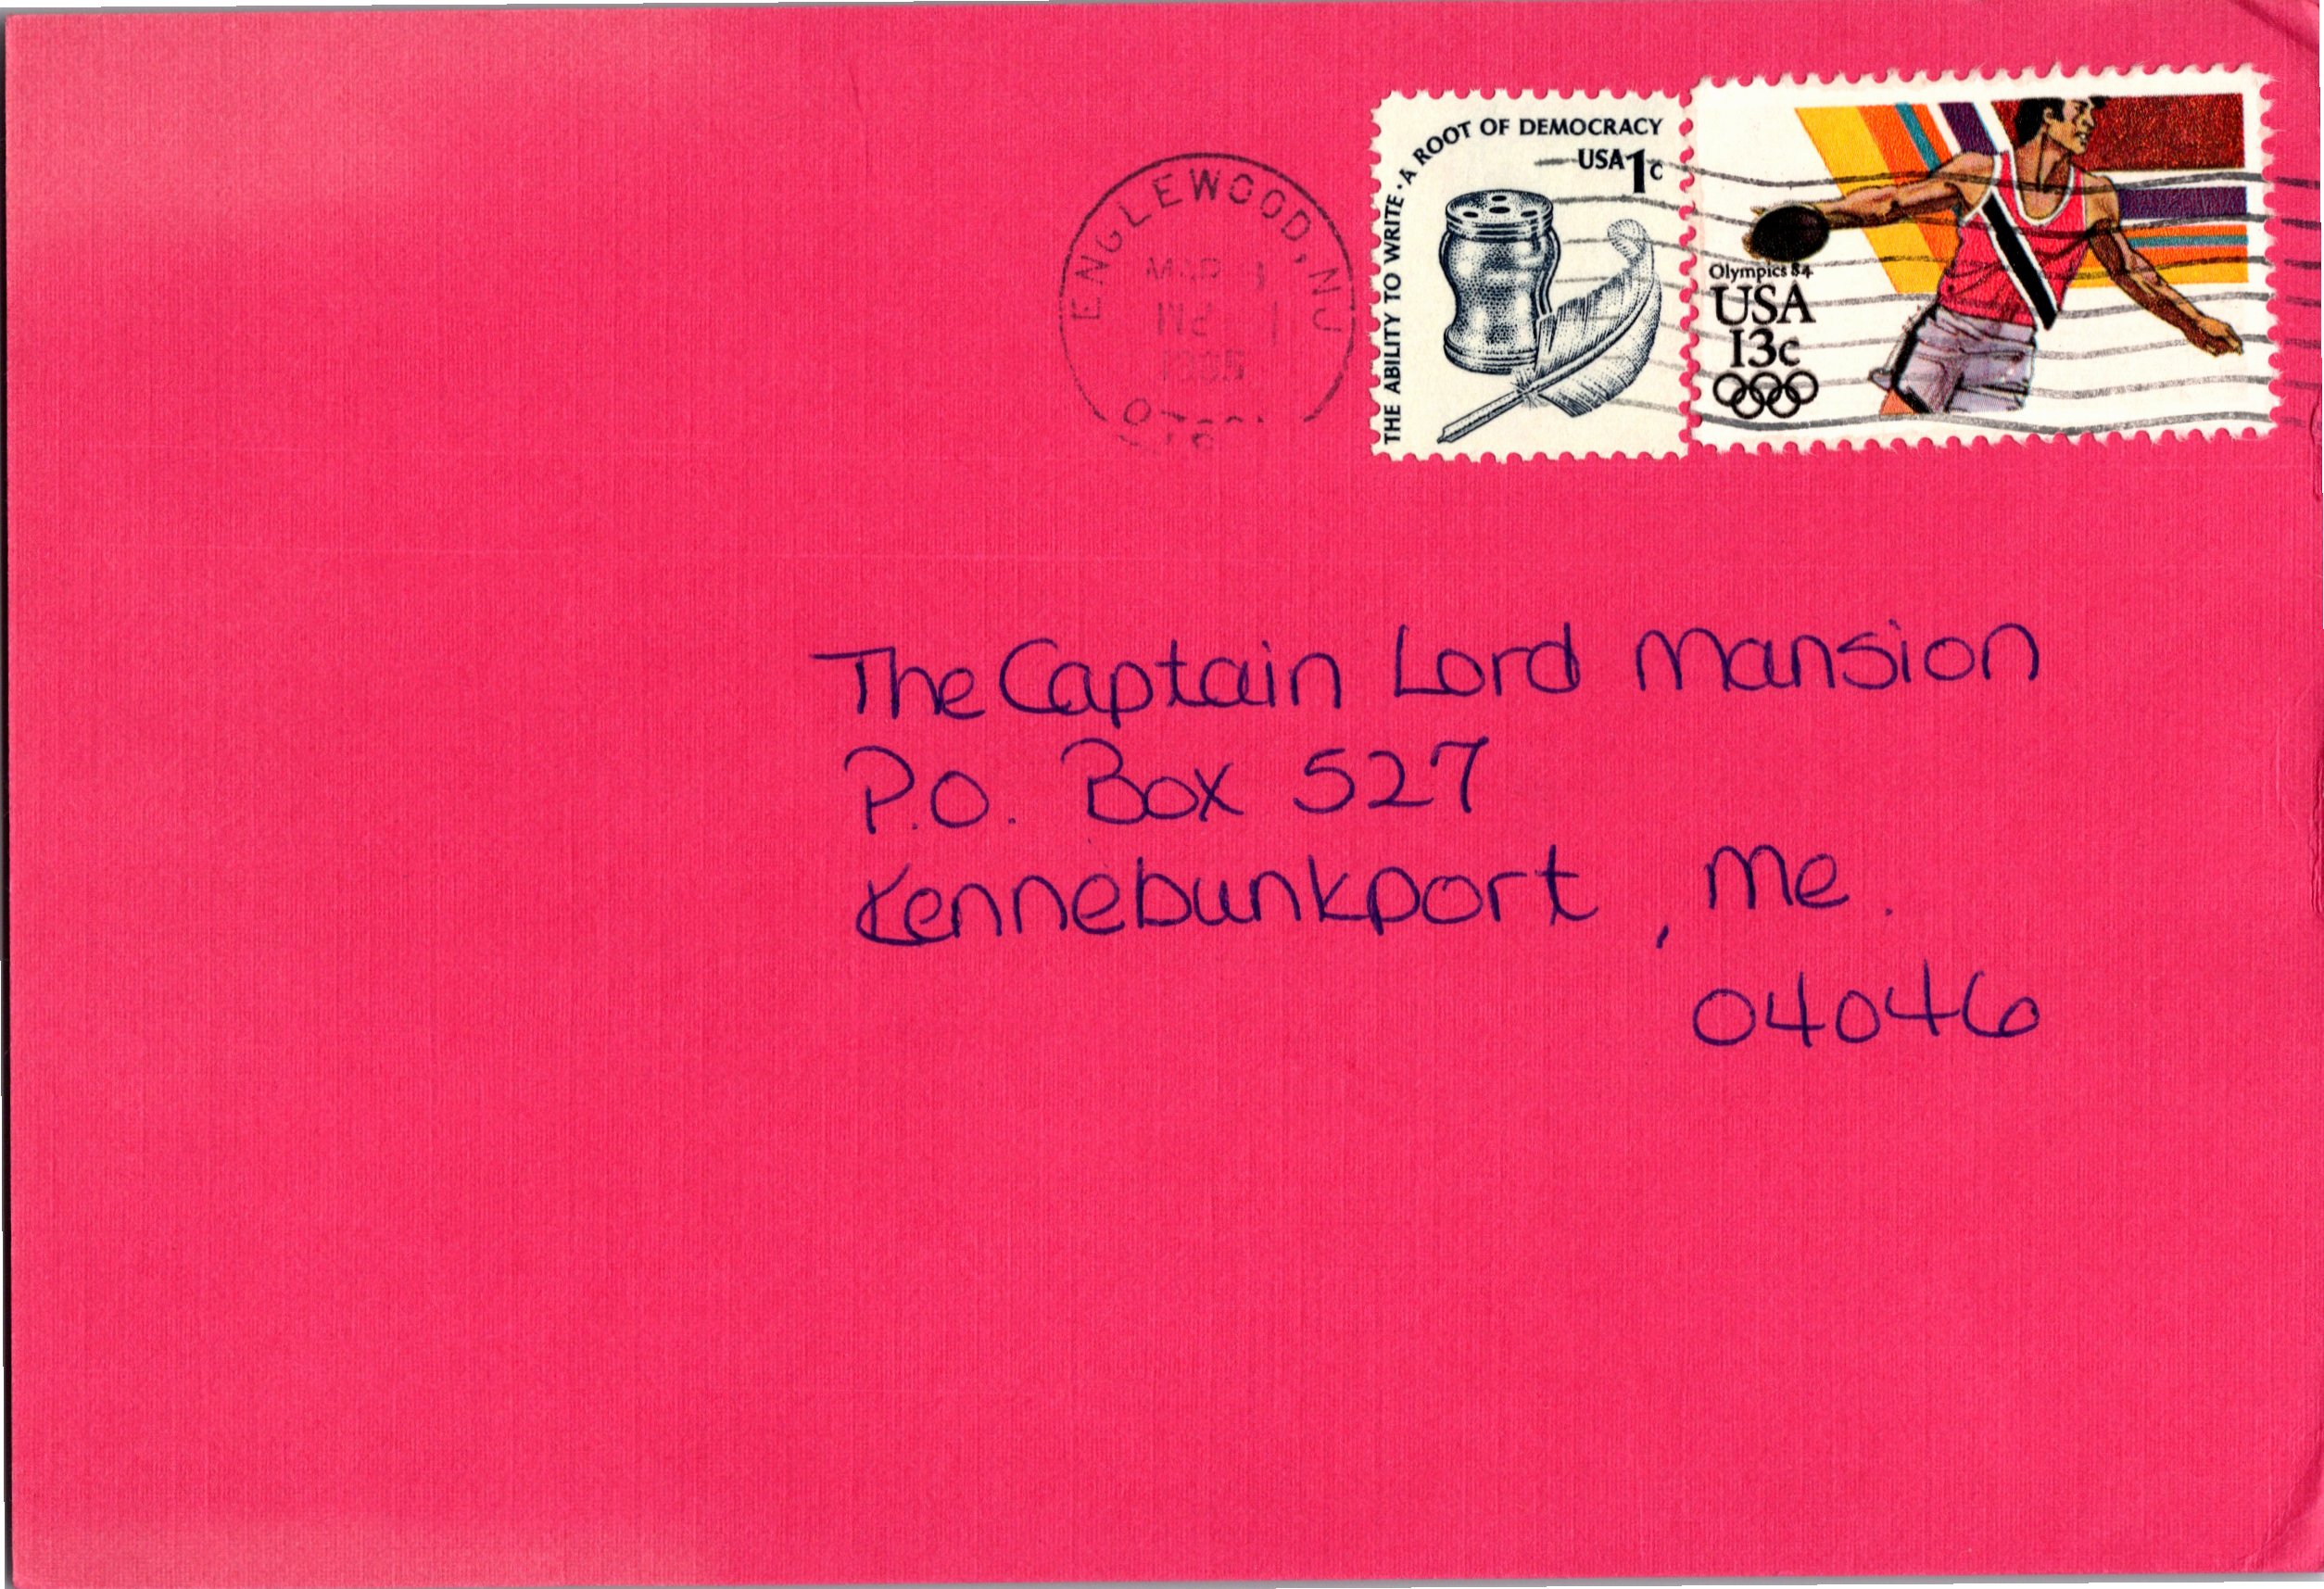 ENGLEWOOD, NJ
THE ABILITY TO WRITE · A ROOT OF DEMOCRACY
USA 1c
Olympics 84
USA
13c
The Captain Lord Mansion
P.O. Box 527
Kennebunkport, Me.
04046